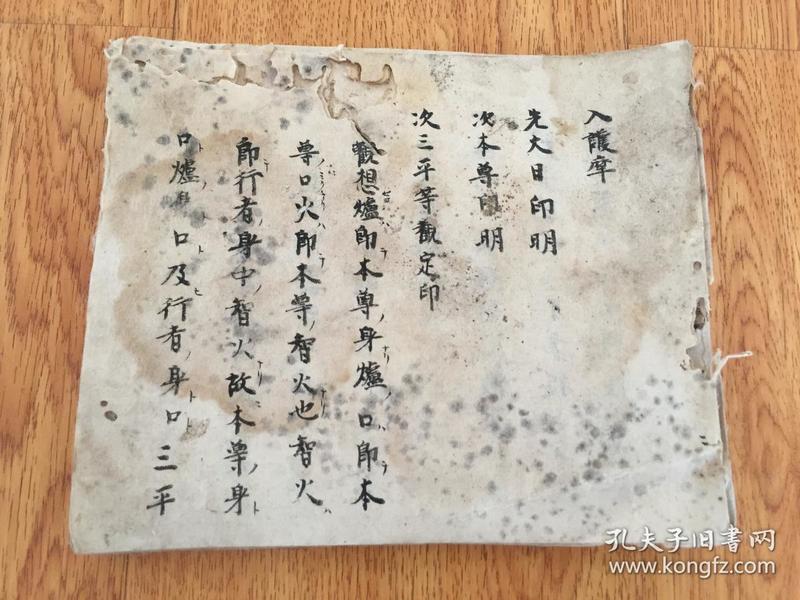 入護摩
先大日印明
次本尊印明
次三平等觀定印
觀想爐即本尊ノ身爐ノ口即本
尊ノ口火即本尊ノ智火也智火ハ
即行者ノ身中ノ智火故本尊ノ身ト
口ト爐ノ口ト及ヒ行者ノ身ト口ト三平
孔夫子旧書网
www.kongfz.com